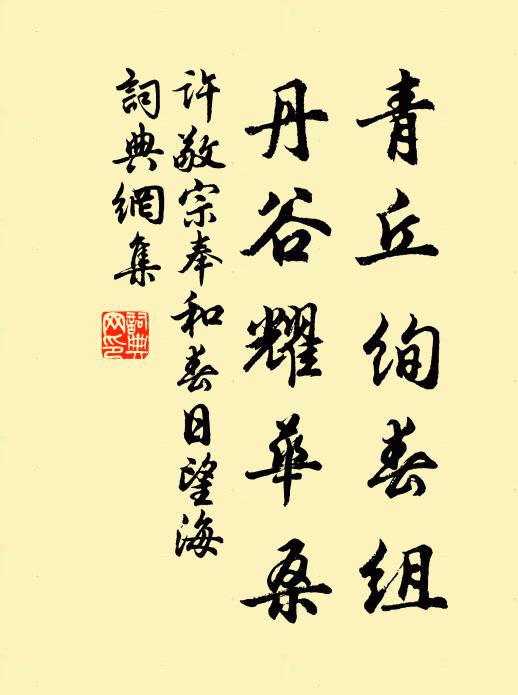 青丘绚春组
丹谷耀華桑
许敬宗奉和春日望海
詞典網集
詞典
网印